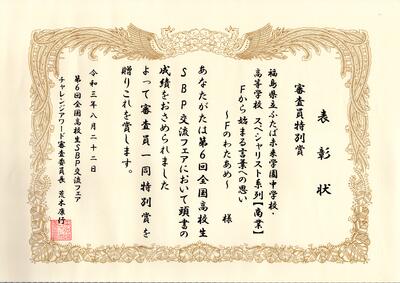 表彰状
審査員特別賞
福島県立ふたば未来学園中学校・
高等学校 スペシャリスト系列【商業】
Fから始まる言葉への思い
～Fのわたあめ～ 様
あなたがたは第6回全国高校生
SBP交流フェアにおいて頭書の
成績をおさめられました
よって審査員一同特別賞を
贈りこれを賞します。
令和三年八月二十二日
第6回全国高校生SBP交流フェア
チャレンジアワード審査委員長 荒木康行